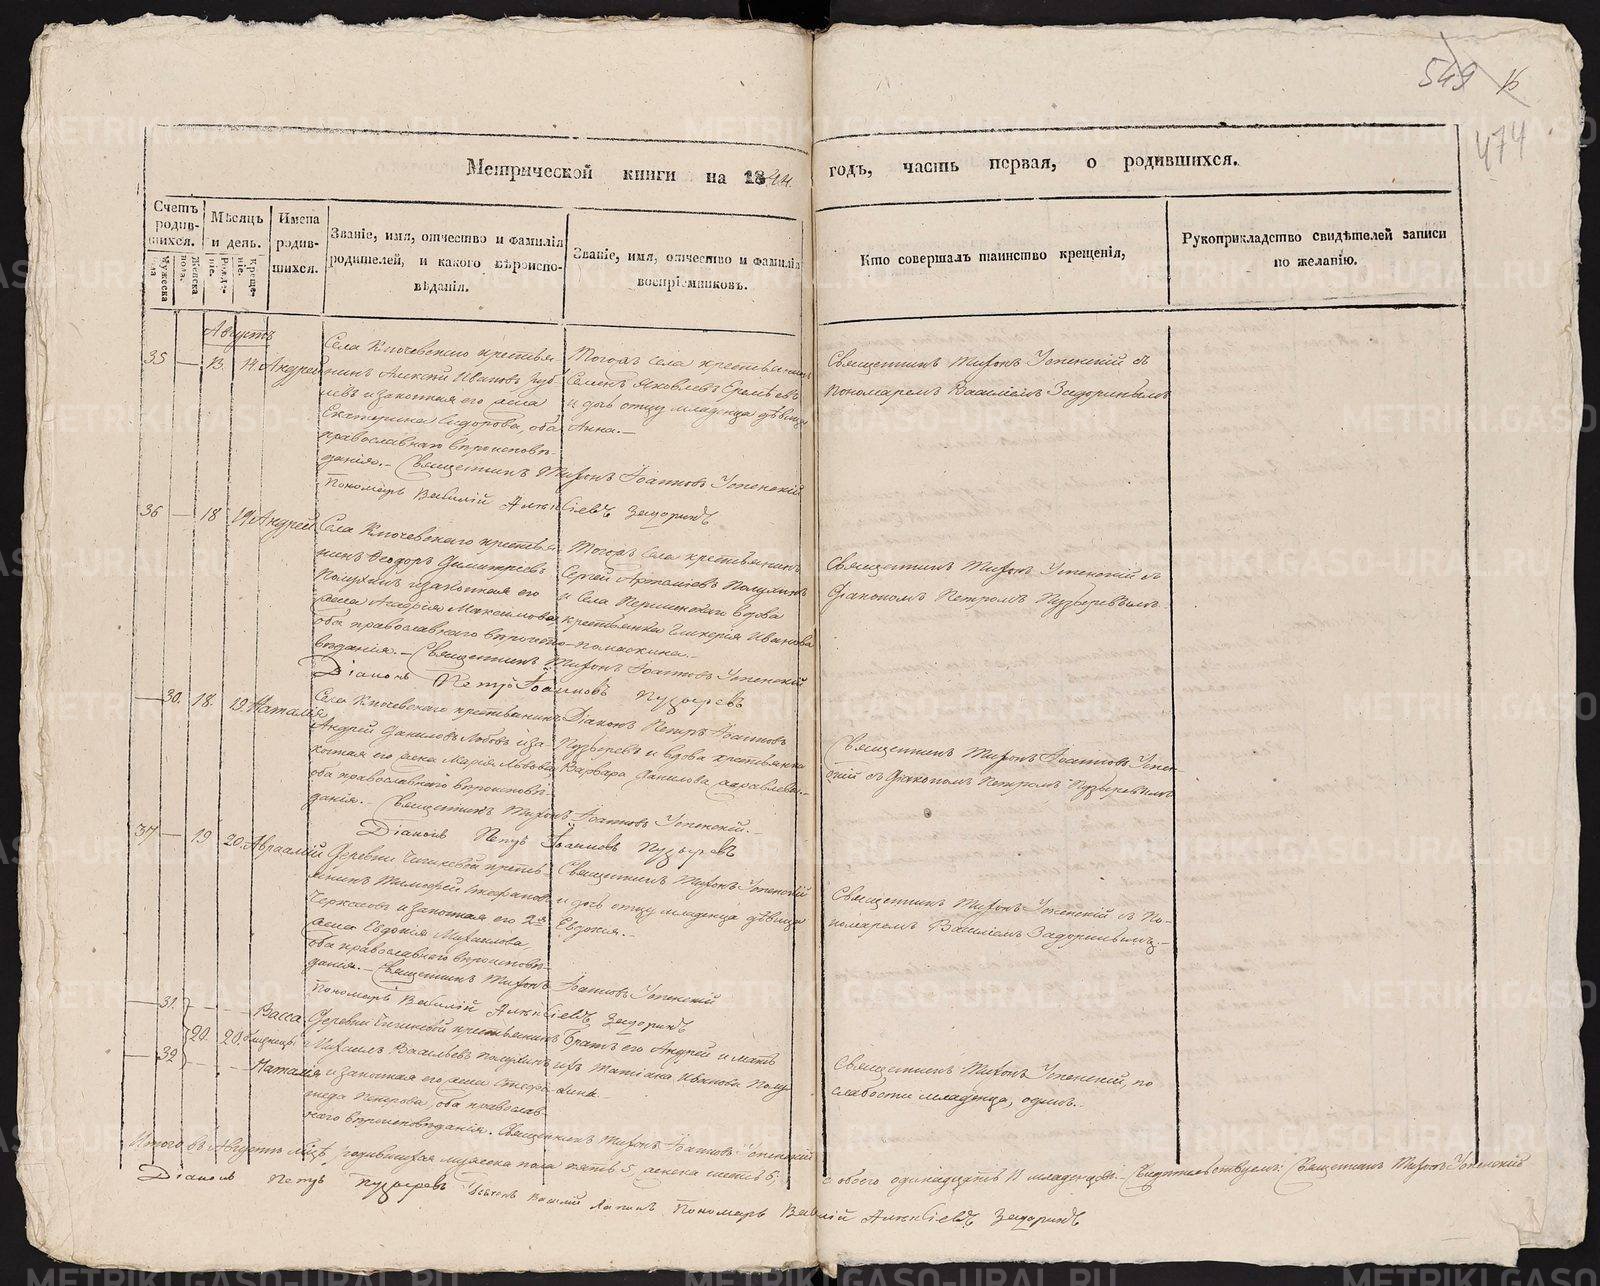 549
474
Метрической книги на 1844. годъ, часть первая, о родившихся.
Счетъ родив-шихся.
Мужеска пола
Женска пола.
Мѣсяцъ и день.
Рожде-ніе.
Креще-ніе.
Имена родив-шихся.
Званіе, имя, отчество и фамилія родителей, и какого вѣроиспо-вѣданія.
Званіе, имя, отчество и фамилія воспріемниковъ.
Кто совершалъ таинство крещенія,
Рукоприкладство свидѣтелей записи по желанію.
Августъ
35 — 13. 14. Андрей
Села Ключевскаго крестья
нинъ Алексѣй Ивановъ
и законная его жена
Екатерина Сидорова, оба
православнаго вѣроисповѣ-
данія. — Священникъ Тихонъ Іоанновъ Успенскій
Пономарь Василій Алексіевъ Задоринъ
Тогожъ села крестьянинъ
Семенъ Яковлевъ
и дочь отцу младенца дѣвица
Анна. —
Священникъ Тихонъ Успенскій съ
Пономаремъ Василіемъ Задоринымъ
36 — 18 19. Андрей
Села Ключевскаго крестья
нинъ Ѳеодоръ Димитріевъ
Полухинъ и законная его
жена Максимова
оба православнаго вѣроиспо-
вѣданія. — Священникъ Тихонъ Іоанновъ Успенскій
Діаконъ Петръ Іоанновъ Пузыревъ
Тогожъ села крестьянинъ
Сергей Артемьевъ Полухинъ
и села Першинскаго вдова
крестьянка Гликерія Иванова
Священникъ Тихонъ Успенскій съ
Діакономъ Петромъ Пузыревымъ
— 30. 18. 19. Наталія
Села Ключевскаго крестьянинъ
Андрей Даниловъ и за-
конная его жена Марія Львова
оба православнаго вѣроисповѣ-
данія. — Священникъ Тихонъ Іоанновъ Успенскій. —
Діаконъ Петръ Іоанновъ Пузыревъ
Діаконъ Петръ Іоанновъ
Пузыревъ и вдова крестьянка
Варвара Данилова
Священникъ Тихонъ Іоанновъ Успен-
скій съ Діакономъ Петромъ Пузыревымъ
37 — 19 20. Авраамій
Деревни Чепиковой кресть-
янинъ Тимофей Стефановъ
Черкасовъ и законная его 2я
жена Евдокія Михаилова
оба православнаго вѣроисповѣ-
данія. — Священникъ Тихонъ Іоанновъ Успенскій
Пономарь Василій Алексіевъ Задоринъ
Священникъ Тихонъ Успенскій
и дочь отцу младенца дѣвица
Евдокія. —
Священникъ Тихонъ Успенскій съ По-
номаремъ Василіемъ Задоринымъ. —
— 31. Васса
20. 20. близнецы
— 32 Наталія
крестьянинъ
Михаилъ Васильевъ Полухинъ
и законная его жена
Петрова, оба православ-
наго вѣроисповѣданія. Священникъ Тихонъ Іоанновъ Успенскій
Братъ его Андрей и мать
ихъ Татіана Иванова Полу-
хина.
Священникъ Тихонъ Успенскій, по
слабости младенца, одинъ. —
Итого въ Августѣ м-цѣ родившихся мужеска пола пять 5, женска шесть 6, а обоего одинадцать 11 младенцевъ. — Свидѣтельствуемъ: Священникъ Тихонъ Успенскій
Діаконъ Петръ Пузыревъ Василій Пономарь Василій Алексіевъ Задоринъ